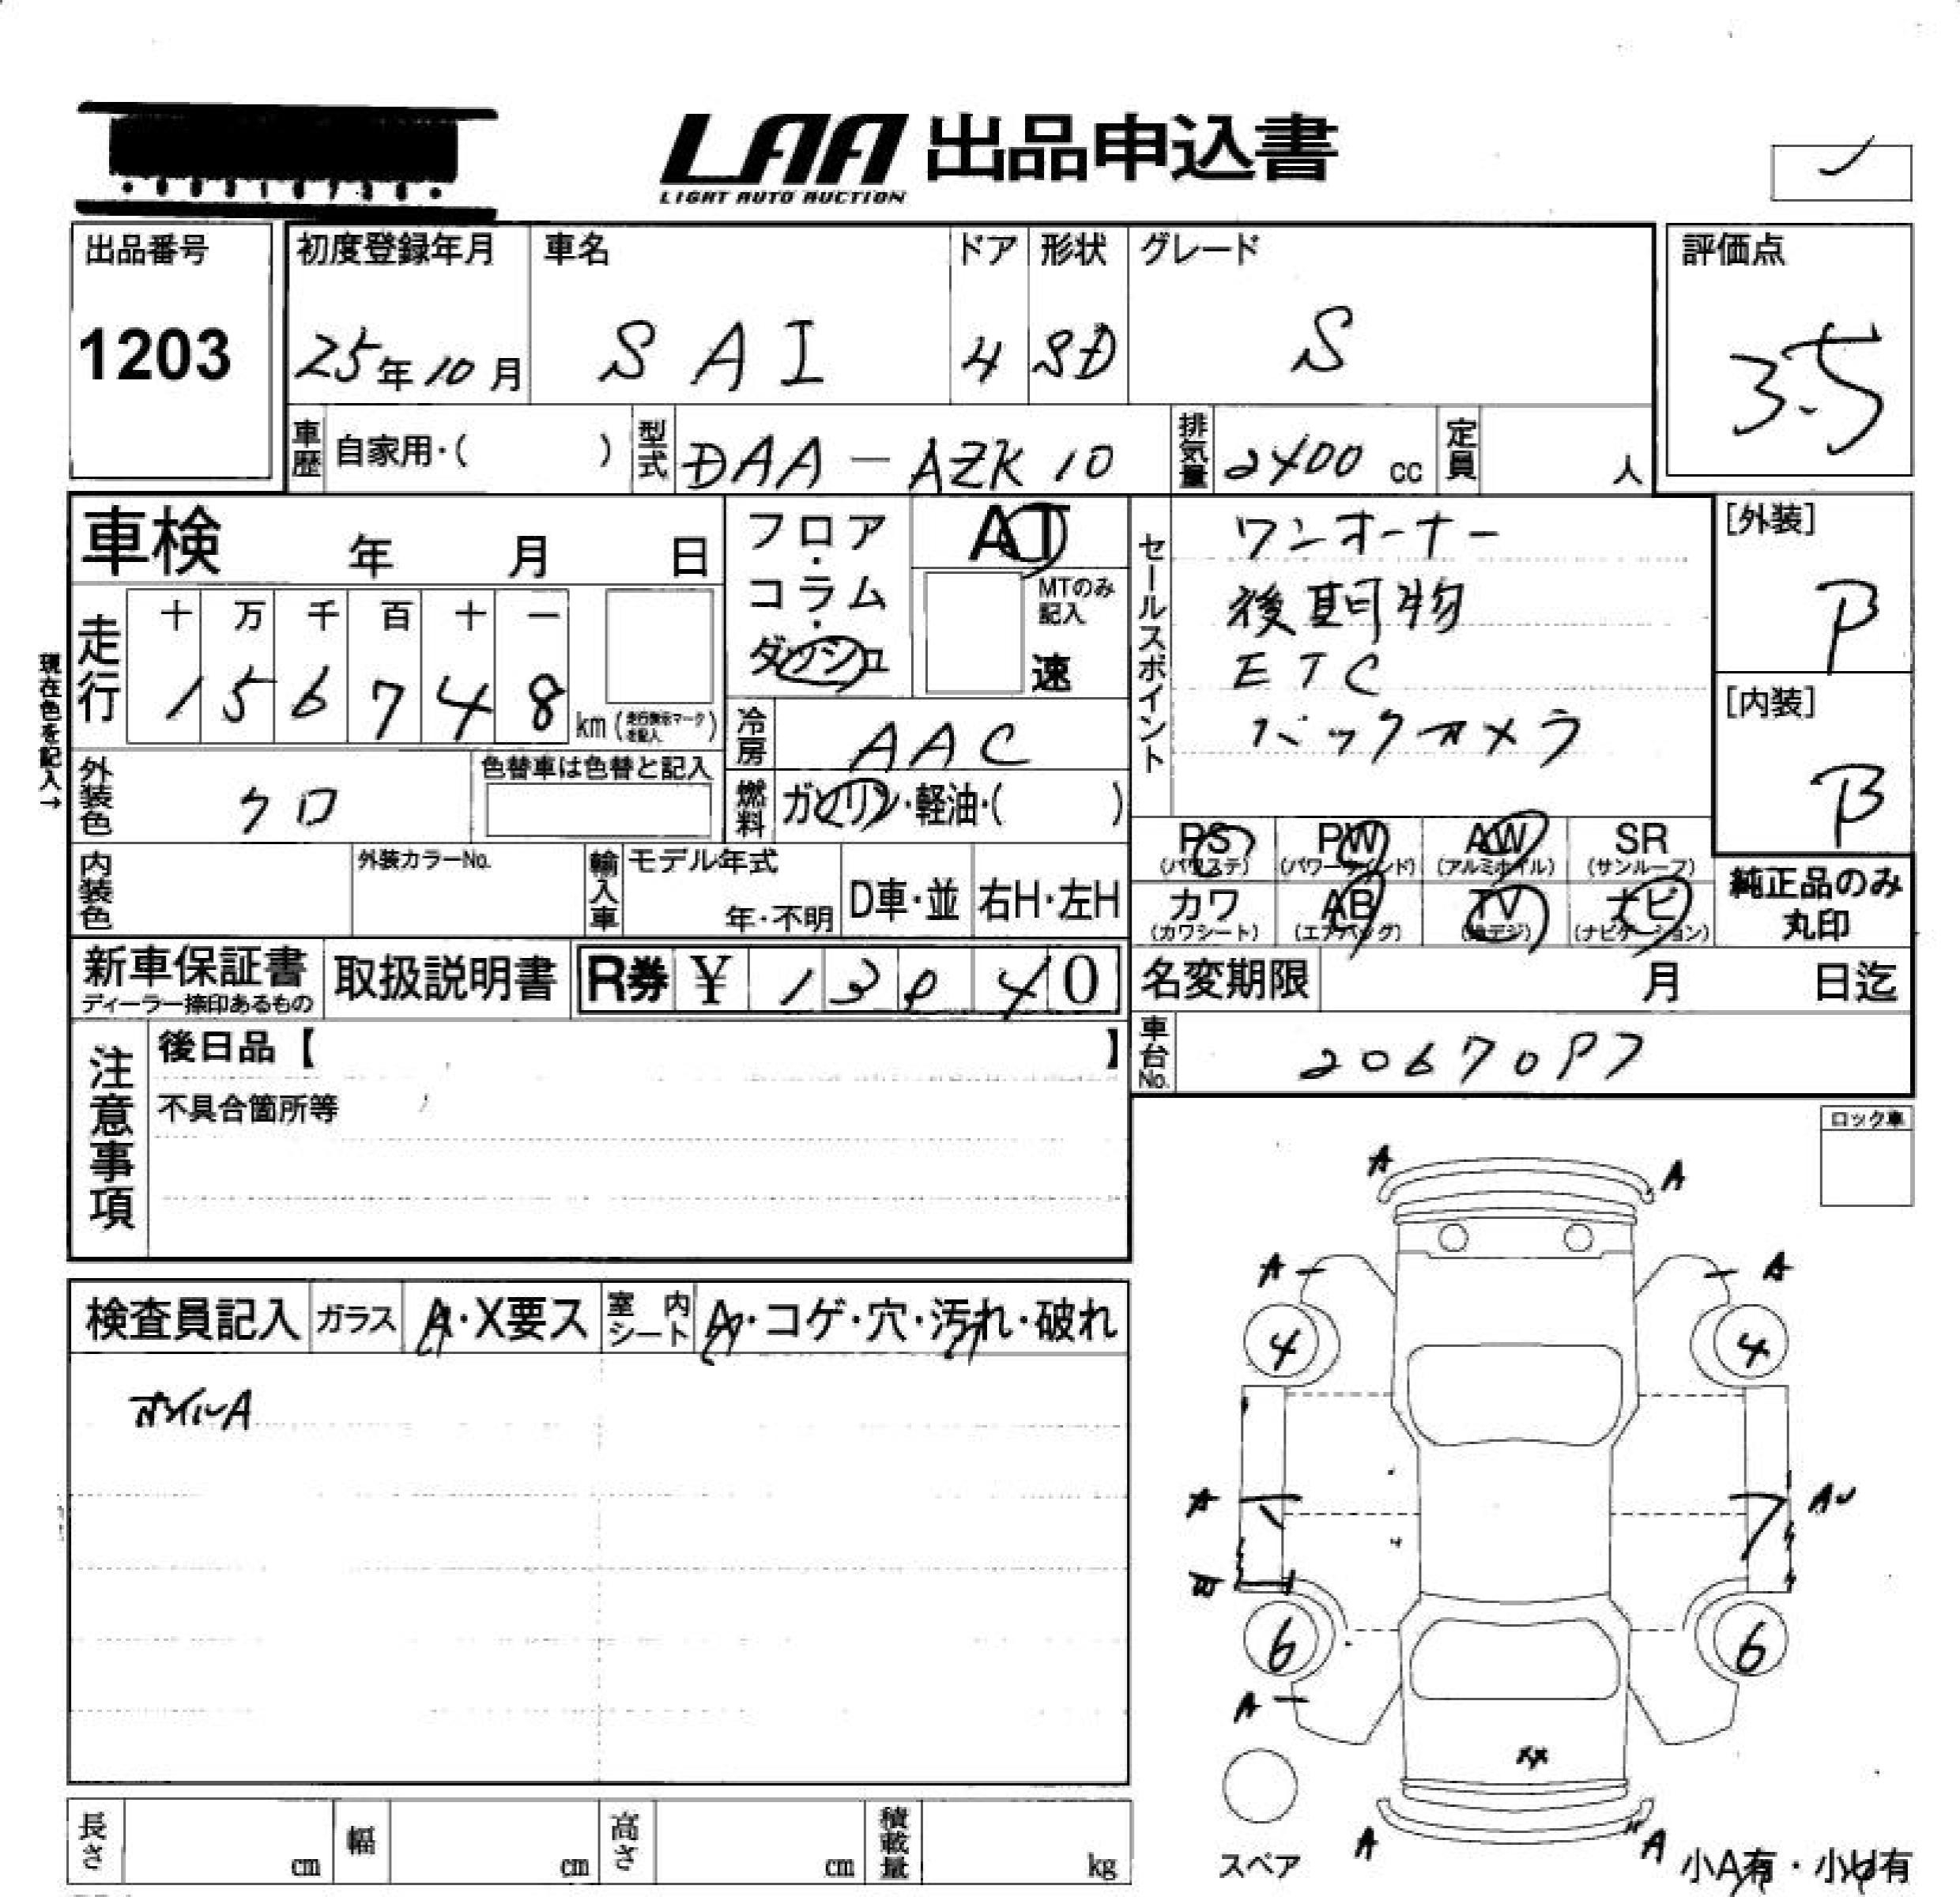 LAA 出品申込書
LIGHT AUTO AUCTION
出品番号
1203
初度登録年月
25年10月
車名
SAI
ドア
4
形状
SD
グレード
S
評価点
3.5
車歴 自家用・( )
型式 DAA-AZK10
排気量 2400 cc
定員 人
車検 年 月 日
フロア・コラム・ダッシュ
AT
MTのみ記入
速
セールスポイント
ワンオーナー
後期物
ETC
バックカメラ
[外装]
B
[内装]
B
現在色を記入→
走行
十 万 千 百 十 一
1 5 6 7 4 8 km (走行表示マークを記入)
冷房 AAC
外装色 クロ
色替車は色替と記入
燃料 ガソリン・軽油・( )
PS (パワステ)
PW (パワーウインド)
AW (アルミホイル)
SR (サンルーフ)
カワ (カワシート)
AB (エアバッグ)
TV (地デジ)
ナビ (ナビゲーション)
純正品のみ
丸印
内装色
外装カラーNo.
輸入車
モデル年式
年・不明
D車・並
右H・左H
新車保証書
ディーラー捺印あるもの
取扱説明書
R券 ¥
0
名変期限 月 日迄
車台No.
注意事項
後日品【 】
不具合箇所等
ロック車
A A
A A
4 4
A
6 6
A
XX
A A
検査員記入
ガラス A・X要ス
室内シート A・コゲ・穴・汚れ・破れ
ホイルA
長さ cm
幅 cm
高さ cm
積載量 kg
スペア
小A有・小U有